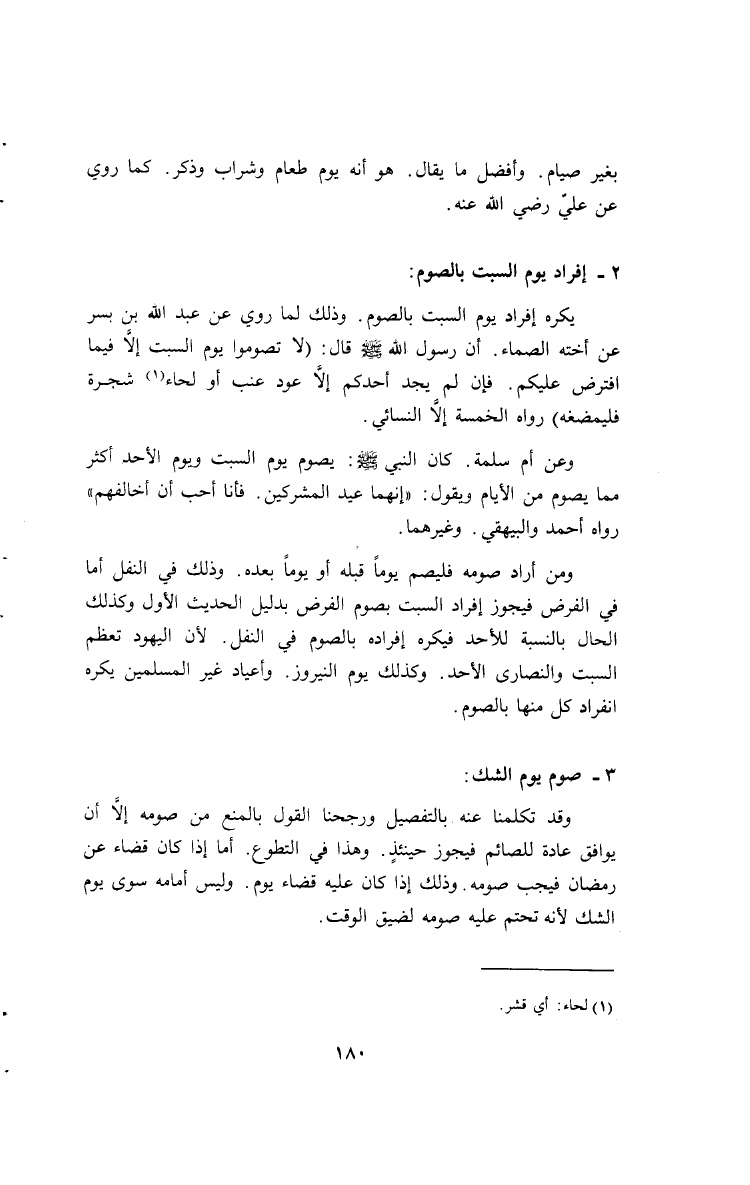 بغير صيام. وأفضل ما يقال. هو أنه يوم طعام وشراب وذكر. كما روي
عن عليّ رضي الله عنه.
٢ - إفراد يوم السبت بالصوم:
يكره إفراد يوم السبت بالصوم. وذلك لما روي عن عبد الله بن بسر
عن أخته الصماء. أن رسول الله ﷺ قال: (لا تصوموا يوم السبت إلاَّ فيما
افترض عليكم. فإن لم يجد أحدكم إلاَّ عود عنب أو لحاء(١) شجرة
فليمضغه) رواه الخمسة إلاَّ النسائي.
وعن أم سلمة. كان النبي ﷺ: يصوم يوم السبت ويوم الأحد أكثر
مما يصوم من الأيام ويقول: «إنهما عيد المشركين. فأنا أحب أن أخالفهم»
رواه أحمد والبيهقي. وغيرهما.
ومن أراد صومه فليصم يوماً قبله أو يوماً بعده. وذلك في النفل أما
في الفرض فيجوز إفراد السبت بصوم الفرض بدليل الحديث الأول وكذلك
الحال بالنسبة للأحد فيكره إفراده بالصوم في النفل. لأن اليهود تعظم
السبت والنصارى الأحد. وكذلك يوم النيروز. وأعياد غير المسلمين يكره
انفراد كل منها بالصوم.
٣ - صوم يوم الشك:
وقد تكلمنا عنه بالتفصيل ورجحنا القول بالمنع من صومه إلاَّ أن
يوافق عادة للصائم فيجوز حينئذٍ. وهذا في التطوع. أما إذا كان قضاء عن
رمضان فيجب صومه. وذلك إذا كان عليه قضاء يوم. وليس أمامه سوى يوم
الشك لأنه تحتم عليه صومه لضيق الوقت.
(١) لحاء: أي قشر.
١٨٠